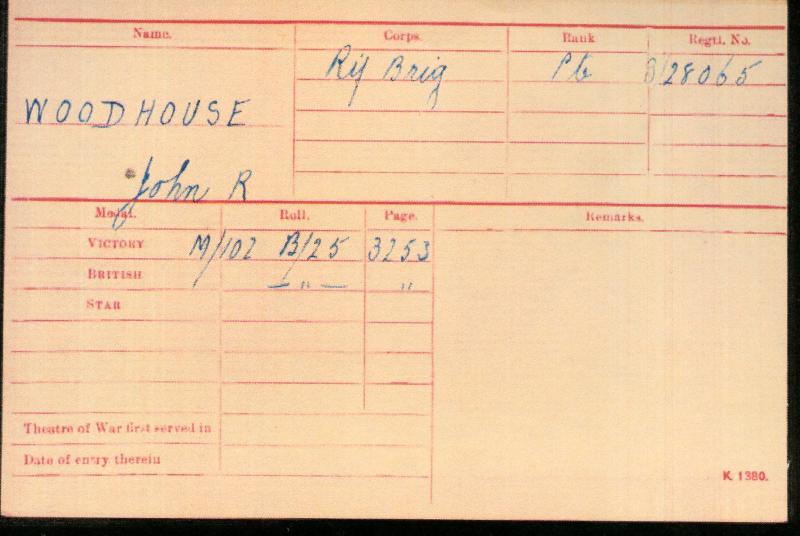 Name. Corps. Rank Regtl. No.
Rif Brig Pte B/28065
WOODHOUSE
John R
Medal. Roll. Page. Remarks.
VICTORY M/102 B/25 3253
BRITISH — " — "
STAR
Theatre of War first served in
Date of entry therein
K. 1380.